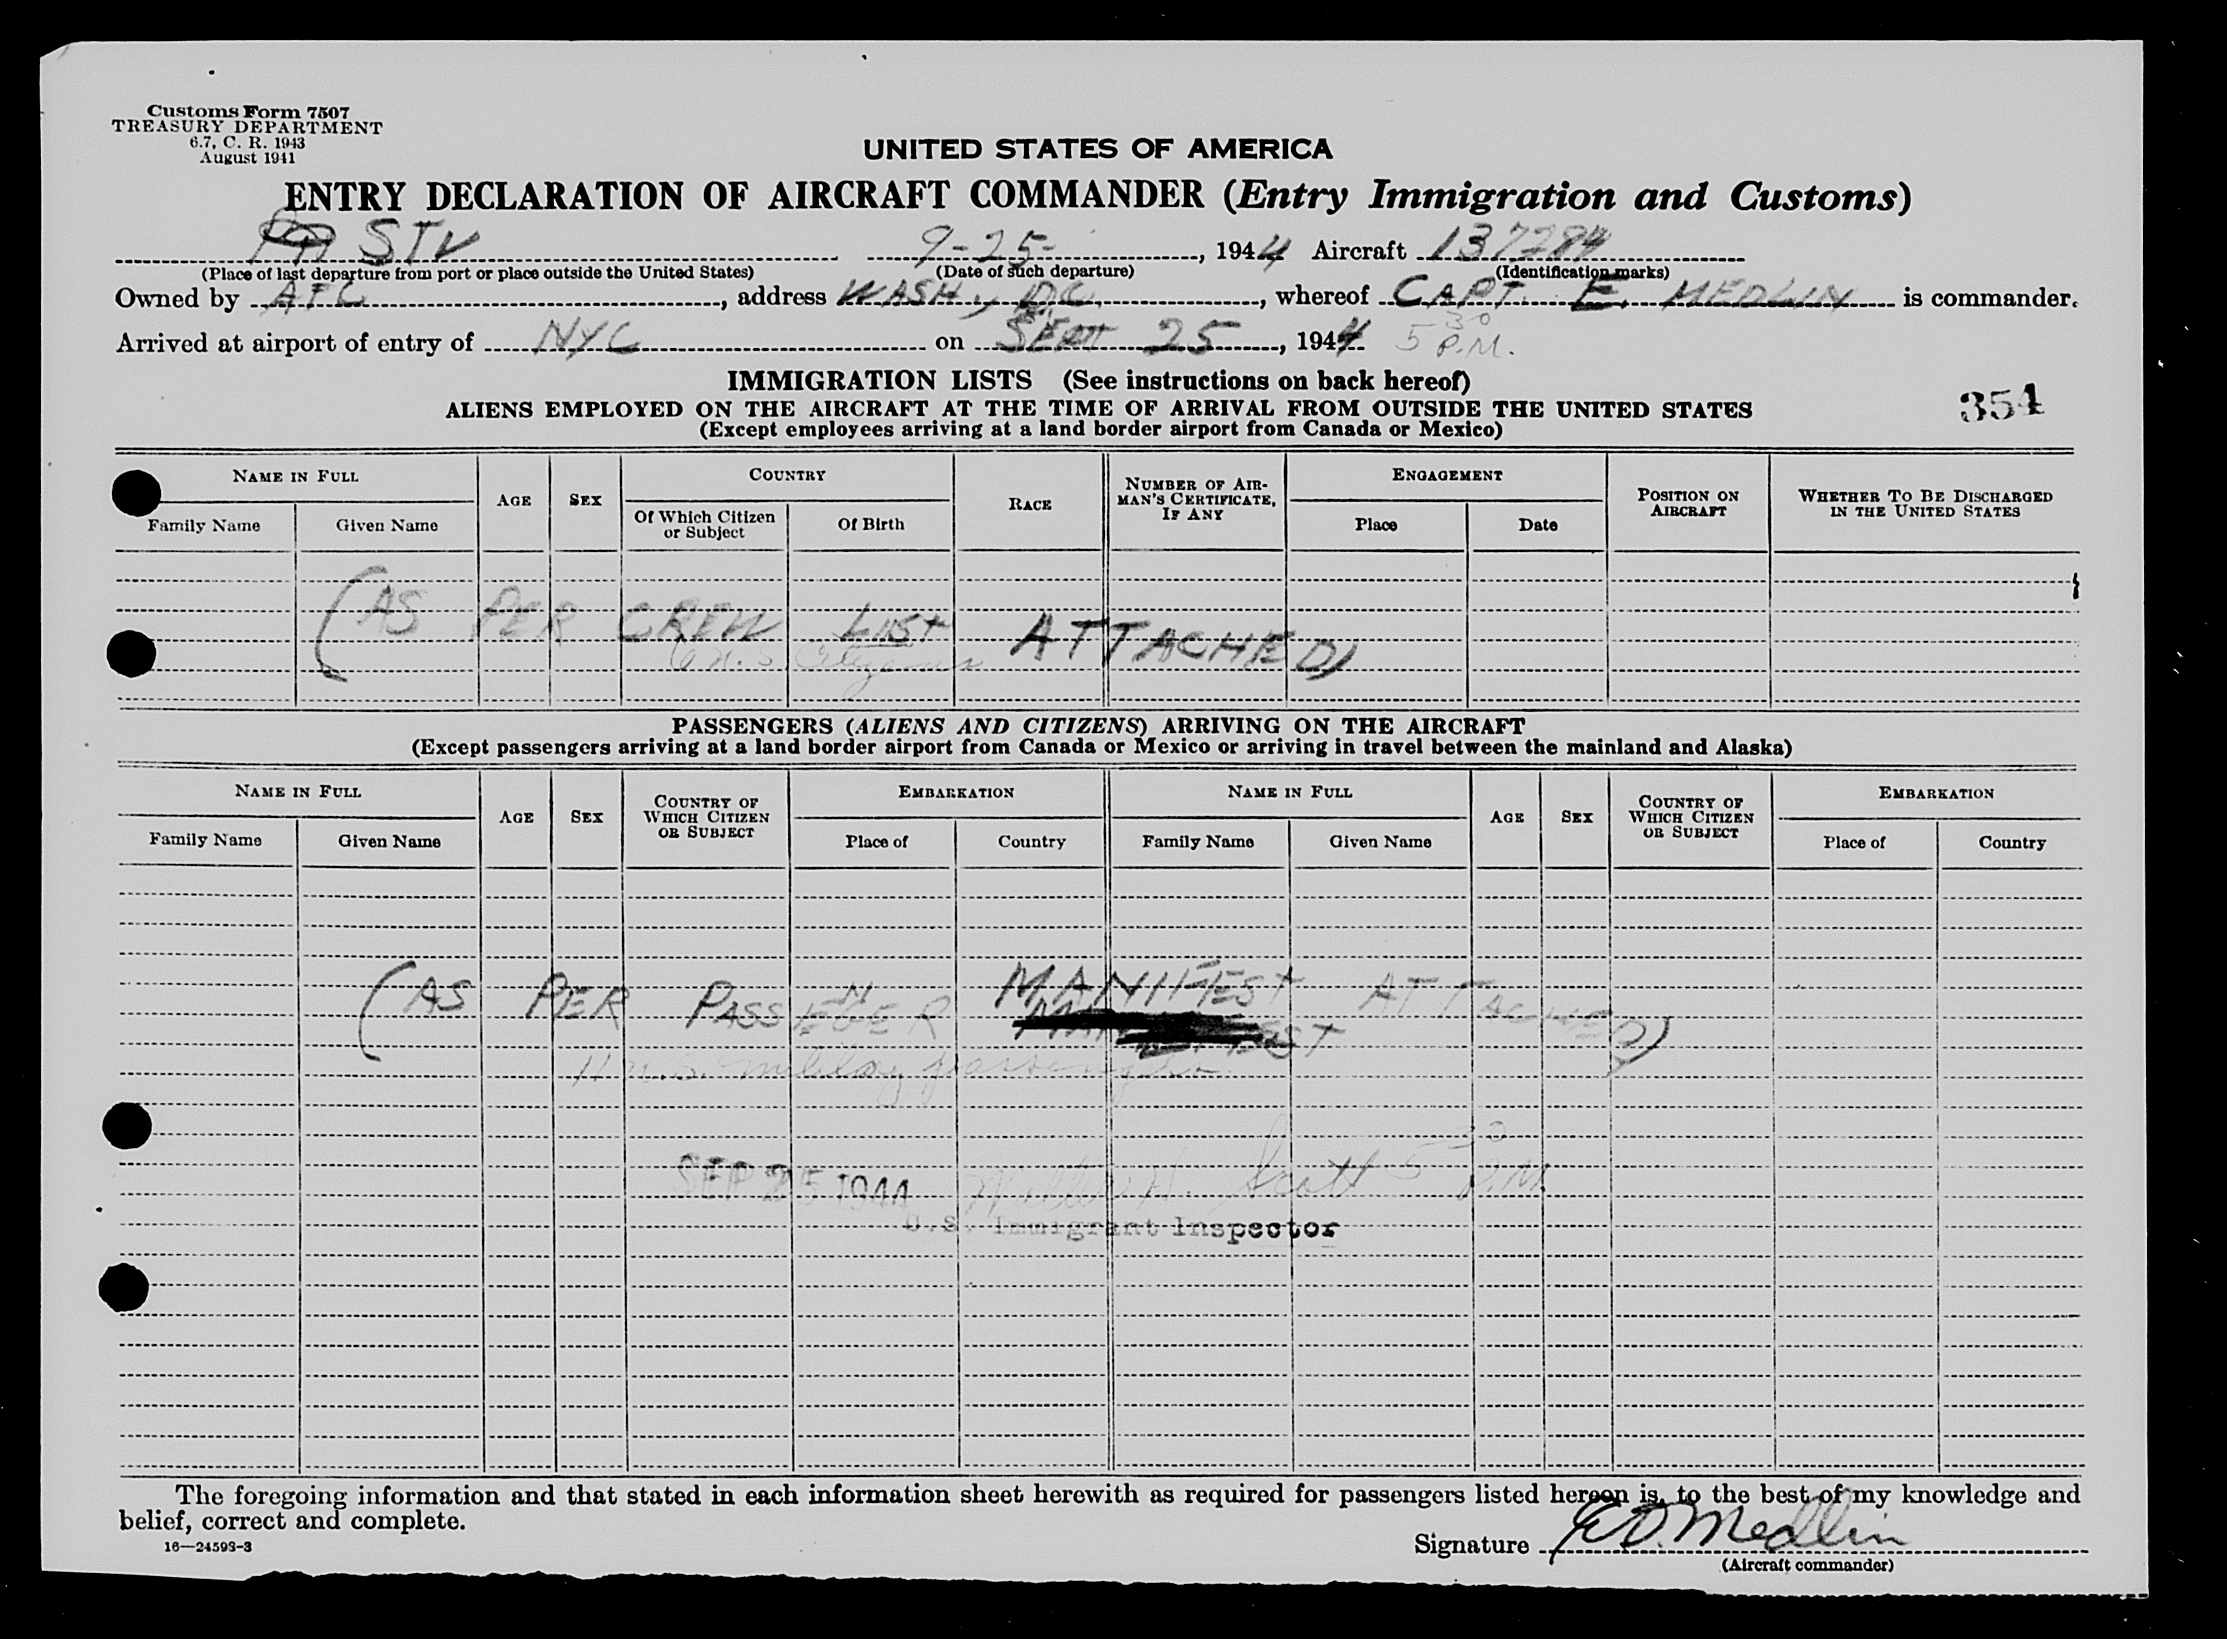 Customs Form 7507
TREASURY DEPARTMENT
6.7, C. R. 1943
August 1941
UNITED STATES OF AMERICA
ENTRY DECLARATION OF AIRCRAFT COMMANDER (Entry Immigration and Customs)
STV 9-25-, 1944 Aircraft 137284
(Place of last departure from port or place outside the United States) (Date of such departure) (Identification marks)
Owned by ATC, address WASH., D.C., whereof CAPT. E. MEDLIN is commander.
Arrived at airport of entry of NYC on SEPT 25, 1944 5 30 P.M.
IMMIGRATION LISTS (See instructions on back hereof)
354
ALIENS EMPLOYED ON THE AIRCRAFT AT THE TIME OF ARRIVAL FROM OUTSIDE THE UNITED STATES
(Except employees arriving at a land border airport from Canada or Mexico)
NAME IN FULL AGE SEX COUNTRY RACE NUMBER OF AIRMAN'S CERTIFICATE, IF ANY ENGAGEMENT POSITION ON AIRCRAFT WHETHER TO BE DISCHARGED IN THE UNITED STATES
Family Name Given Name Of Which Citizen or Subject Of Birth Place Date
(AS PER CREW LIST ATTACHED)
6 U.S. Citizens
PASSENGERS (ALIENS AND CITIZENS) ARRIVING ON THE AIRCRAFT
(Except passengers arriving at a land border airport from Canada or Mexico or arriving in travel between the mainland and Alaska)
NAME IN FULL AGE SEX COUNTRY OF WHICH CITIZEN OR SUBJECT EMBARKATION NAME IN FULL AGE SEX COUNTRY OF WHICH CITIZEN OR SUBJECT EMBARKATION
Family Name Given Name Place of Country Family Name Given Name Place of Country
(AS PER PASSENGER MANIFEST ATTACHED)
11 U.S. military passengers
SEP 25 1944 Walter H. Scott 5 30 P.M.
U.S. Immigrant Inspector
The foregoing information and that stated in each information sheet herewith as required for passengers listed hereon is, to the best of my knowledge and
belief, correct and complete.
16—24593-3
Signature E D. Medlin
(Aircraft commander)